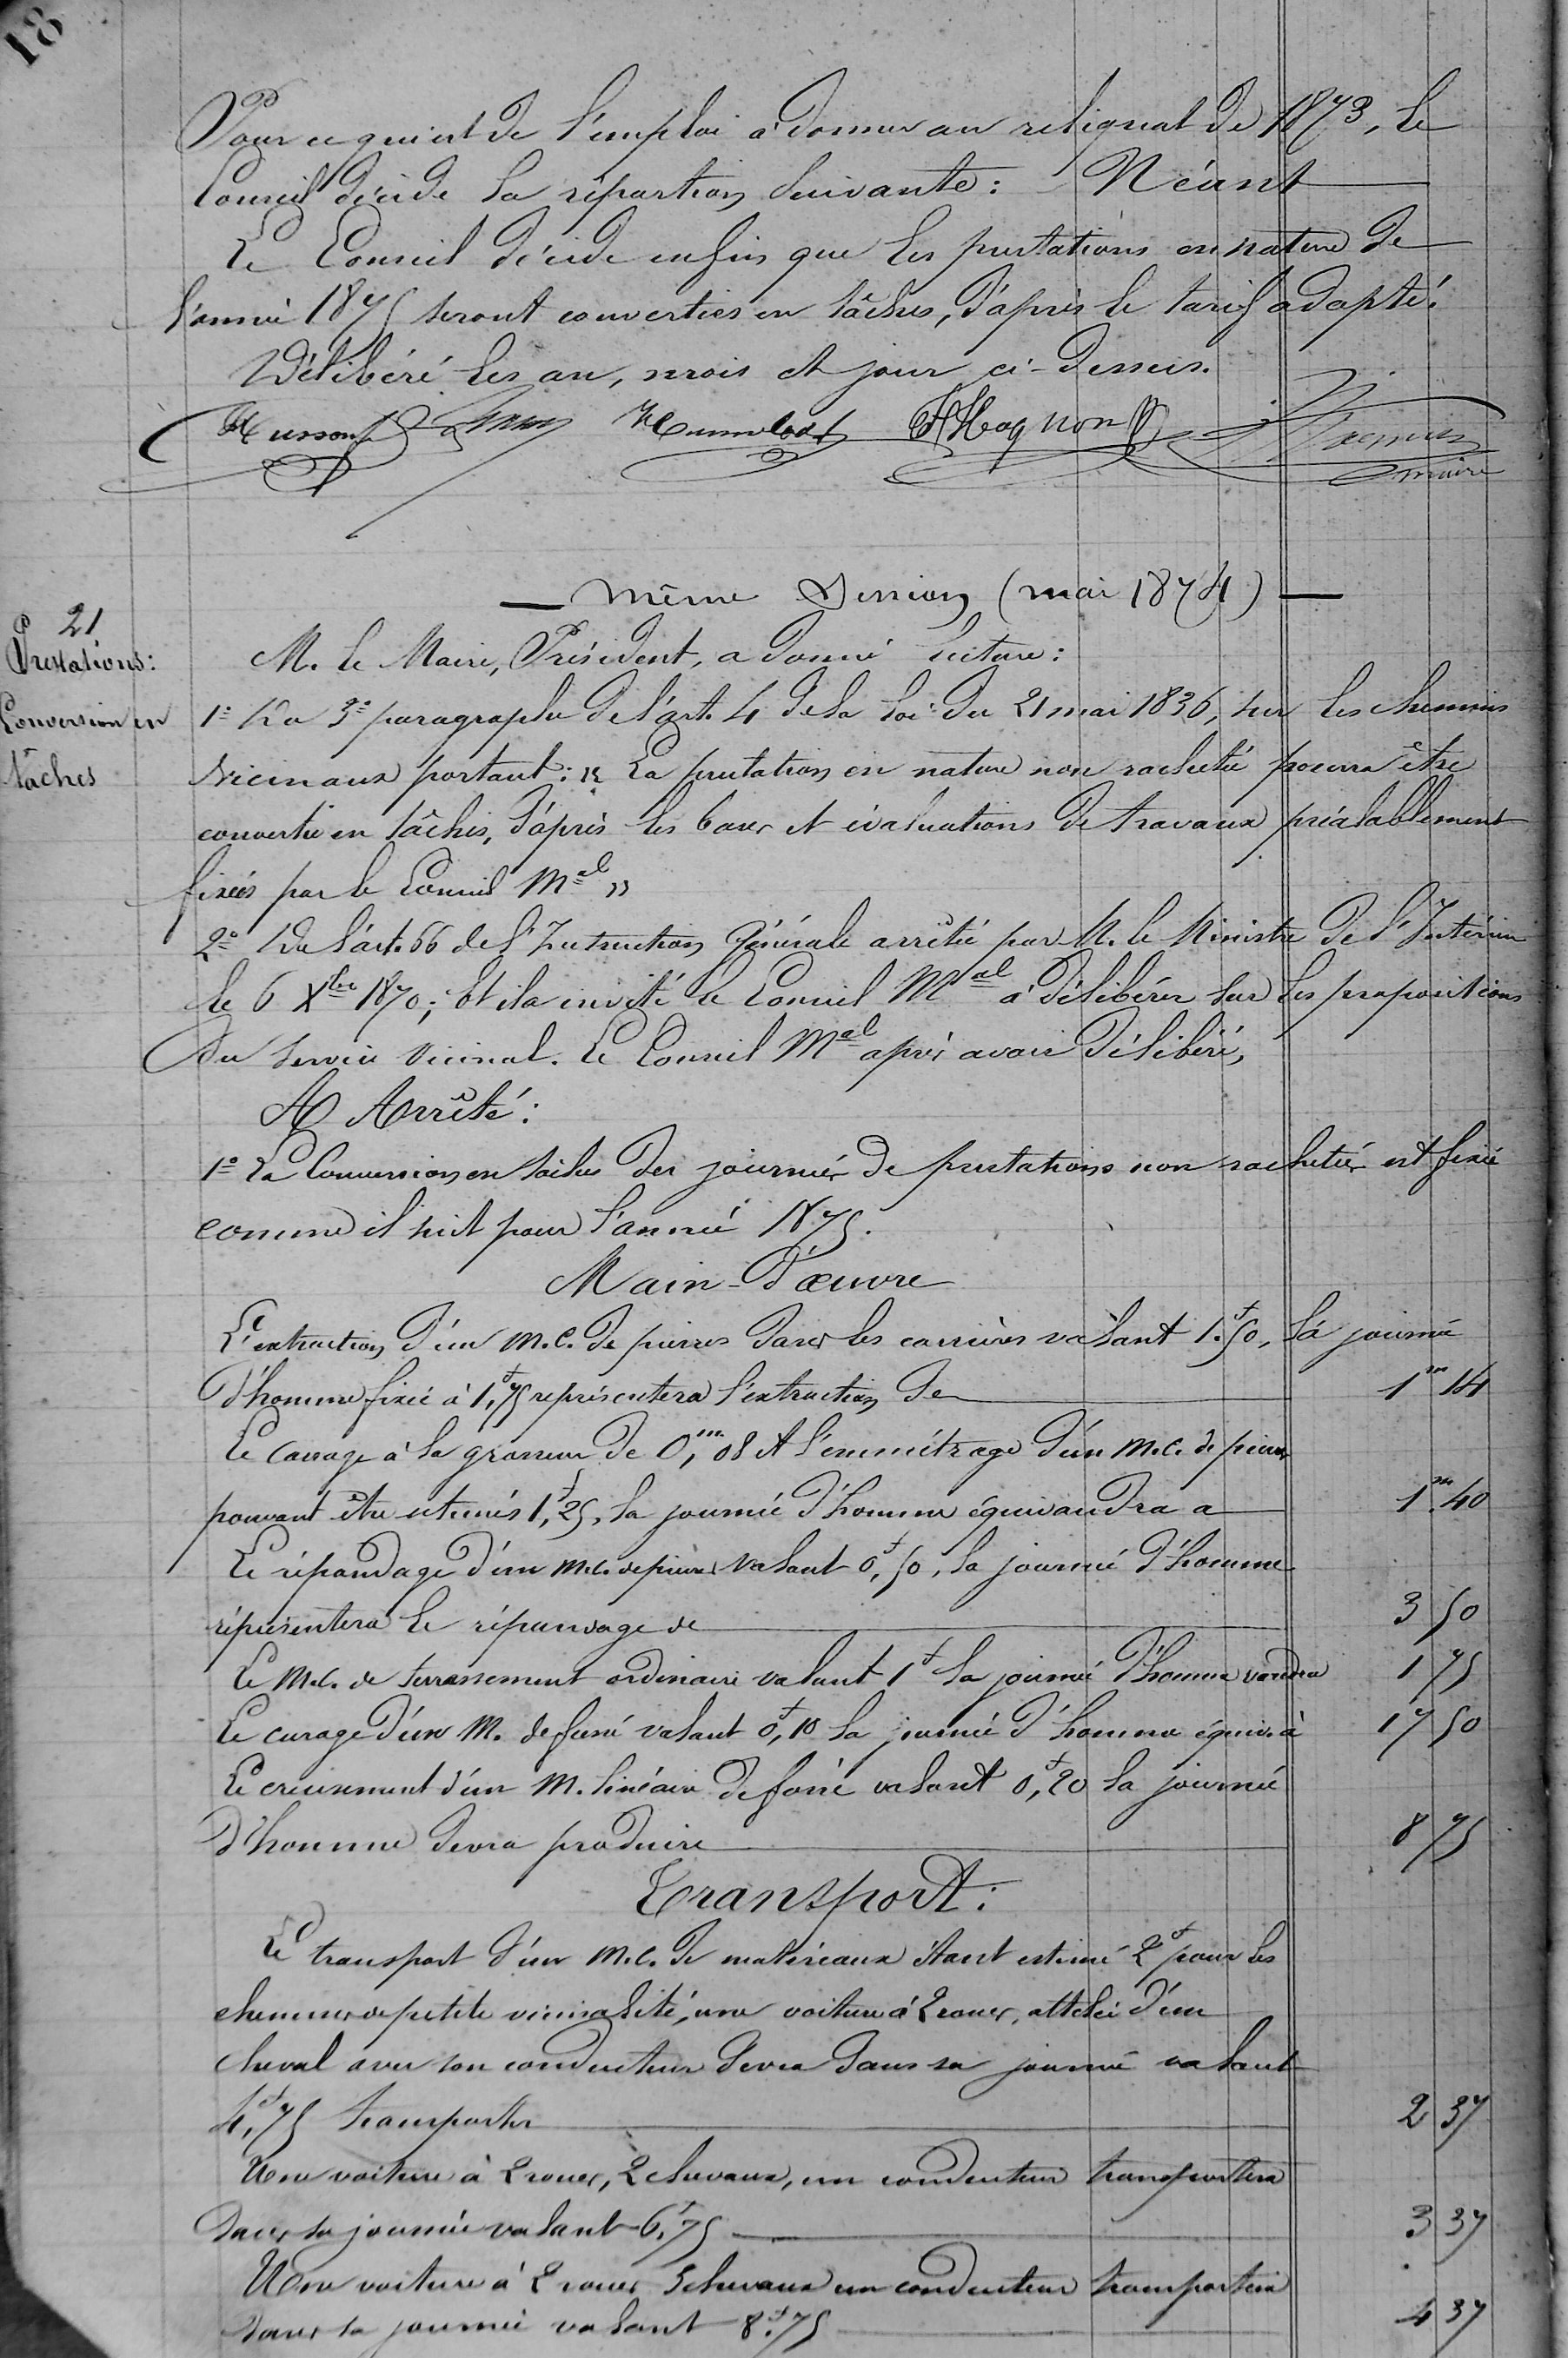 18
Pour ce qui est de l'emploi à donner au reliquat de 1873, le
Conseil décide la répartion suivante : Néant
Le Conseil décide enfin que les prestations en nature de
l'année 1875 seront converties en tâches, d'après le tarif adopté.
Délibéré les an, mois et jour ci-dessus.
Husson Humbert F Hagnon
maire
— Même Session (mai 1874) —
21
Prestations :
Conversion en
tâches
M. le Maire, Président, a donné lecture :
1° Du 3e paragraphe de l'art. 4 de la loi du 21 mai 1836, sur les chemins
vicinaux portant : " La prestation en nature non rachetée pourra être
convertie en tâches, d'après les bases et évaluations de travaux préalablement
fixées par le Conseil Mal "
2° De l'art. 66 de l'Instruction Générale arrêtée par M. le Ministre de l'Intérieur
le 6 Xbre 1870 ; Et il a invité le Conseil Mal à délibérer sur les propositions
du service vicinal. Le Conseil Mal après avoir délibéré,
A Arrêté :
1° La Conversion en tâches des journées de prestations non rachetées est fixée
comme il suit pour l'année 1875.
Main-d'œuvre
L'extraction d'un m.c. de pierres dans les carrières valant 1f.50, la journée
d'homme fixée à 1f,75 représentera l'extraction de 1m 14
Le cassage à la grosseur de 0,m08 et l'emmétrage d'un m.c. de pierres
pouvant être estimés 1f,25, la journée d'homme équivaudra a 1m.40
Le répandage d'un m.c. de pierres valant 0f,50, la journée d'homme
réprésentera le répandage de 3 50
Le m.c. de terrassement ordinaire valant 1f la journée d'homme vaudra 1 75
Le curage d'un M. de fossé valant 0f,10 la journée d'homme équiv. à 17 50
Le creusement d'un M. linéaire de fossé valant 0f,20 la journée
d'homme devra produire 8 75
Transport :
Le transport d'un m.c. de matériaux étant estimé 2f pour les
chemins de petite vicinalité, une voiture à 2 roues, attelée d'un
cheval avec son conducteur devra dans sa journée valant
4f,75 transporter 2 37
Une voiture à 2 roues, 2 chevaux, un conducteur transportera
dans sa journée valant 6f,75 3 37
Une voiture à 2 roues 3 chevaux un conducteur transportera
dans sa journée valant 8f.75 4 37